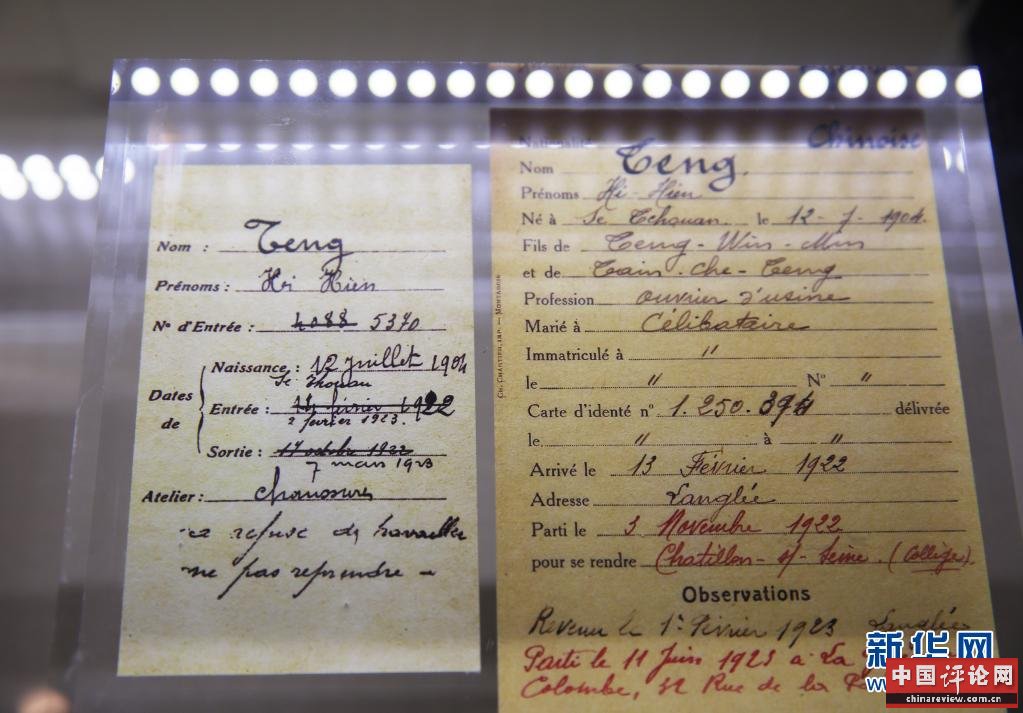 Nom : Teng
Prénoms : Hi Hien
N° d'Entrée : 4088 5370
Naissance : 12 Juillet 1904
Se Thouan
Dates
de
Entrée : 14 février 1922
2 février 1923.
Sortie : 17 octobre 1922
7 mars 1923
Atelier : chaussures
a refusé de travailler
ne pas reprendre –
Chinoise
Nom Teng.
Prénoms Hi-Hien
Né à Se Tchouan le 12-7-1904.
Fils de Teng-Win-Min
et de Tain-Che-Teng
Profession ouvrier d'usine
Marié à Célibataire
Immatriculé à "
le " N° "
Carte d'identé n° 1.250.394 délivrée
le " à "
Arrivé le 13 Février 1922
Adresse Langlée
Parti le 3 Novembre 1922
pour se rendre Chatillon-s/-Seine. (Collège).
Observations
Revenu le 1er Février 1923 Langlée
Parti le 11 Juin 1923 à La
Colombe, 32 Rue de la
CH. CHARTIER, IMP. — MONTARGIS
新华网
中国评论网
chinareview.com.cn